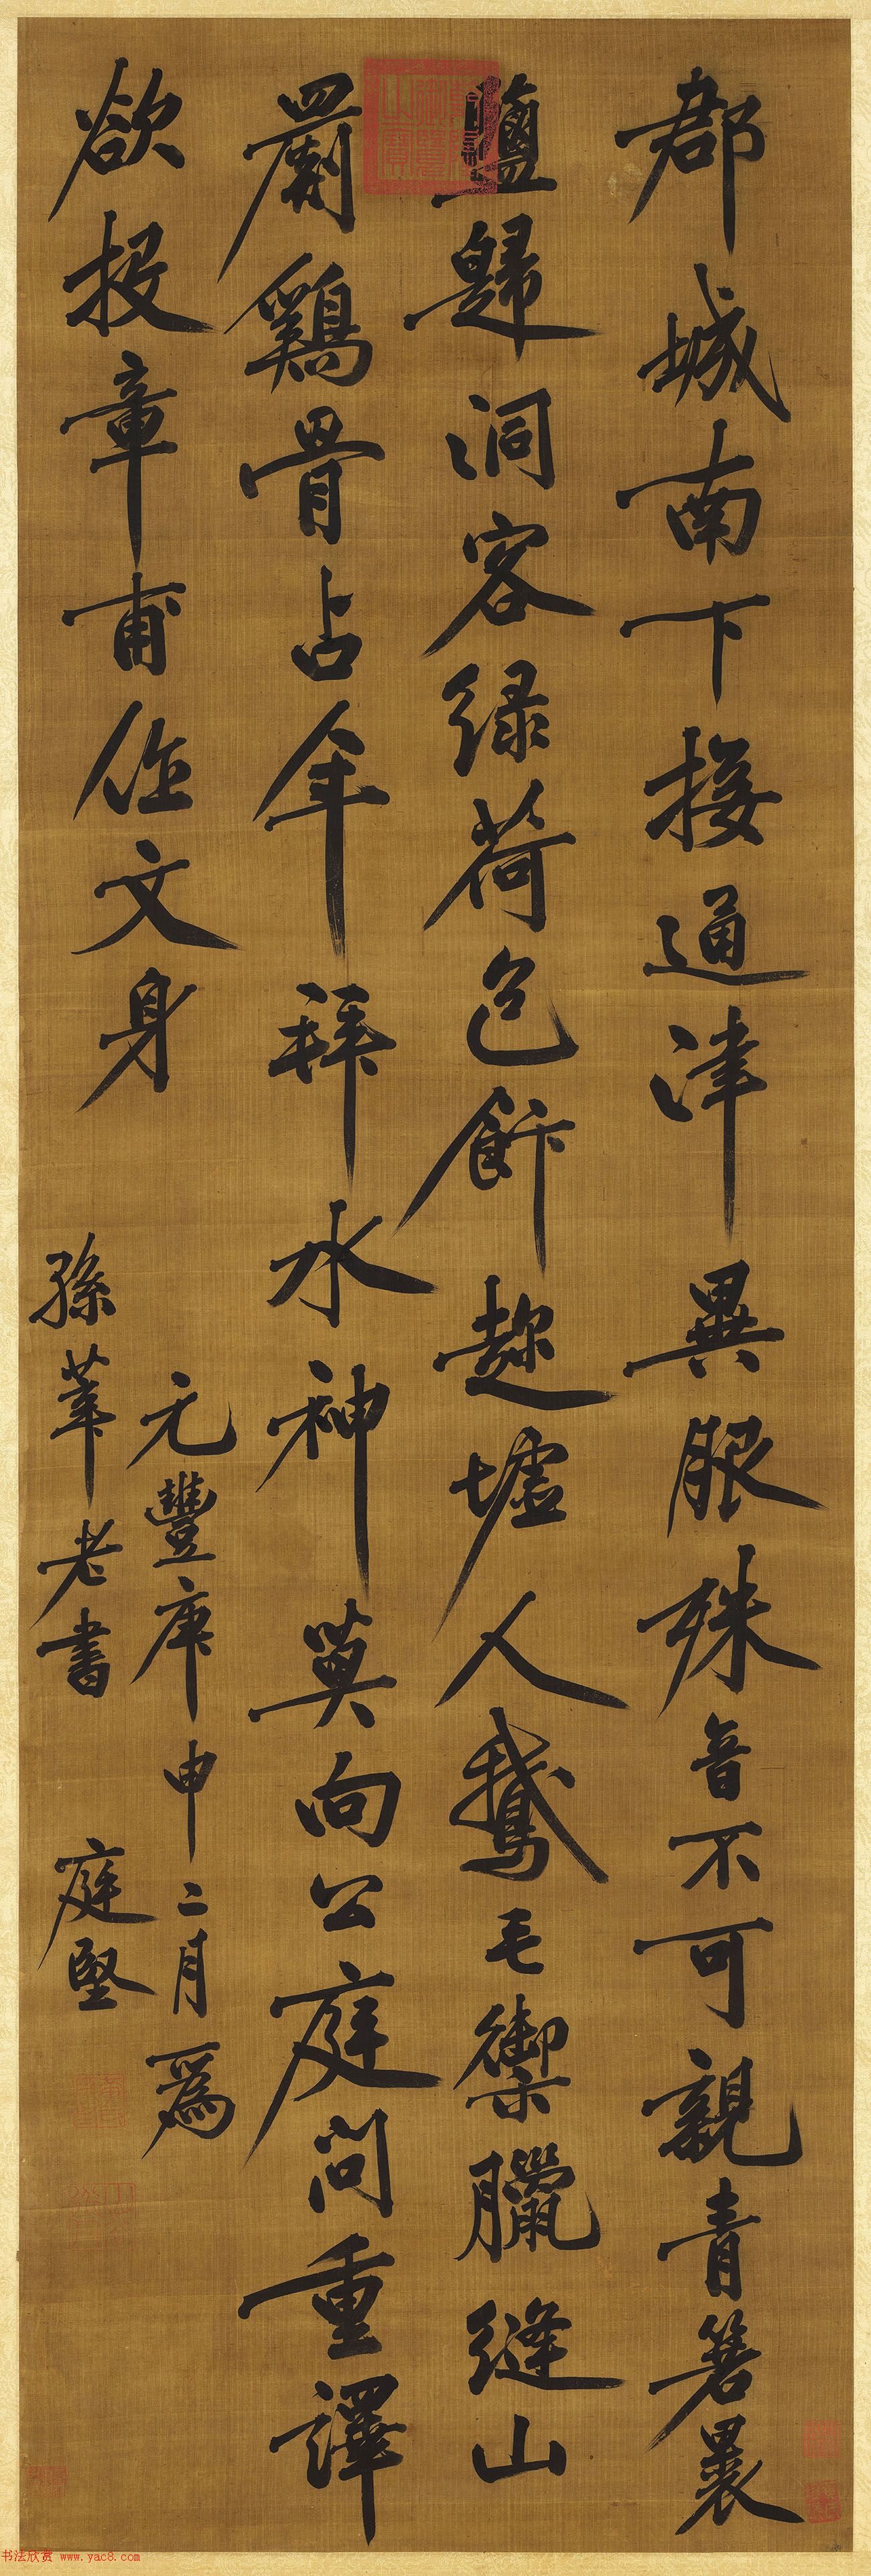 郡城南下接通津異服殊音不可親青箬裹
鹽歸洞客綠荷包飰趂墟人鵝毛御臘縫山
罽鷄骨占年拜水神莫向公庭問重譯
欲投章甫作文身
元豐庚申二月爲
孫莘老書 庭堅
书法欣赏 www.yac8.com